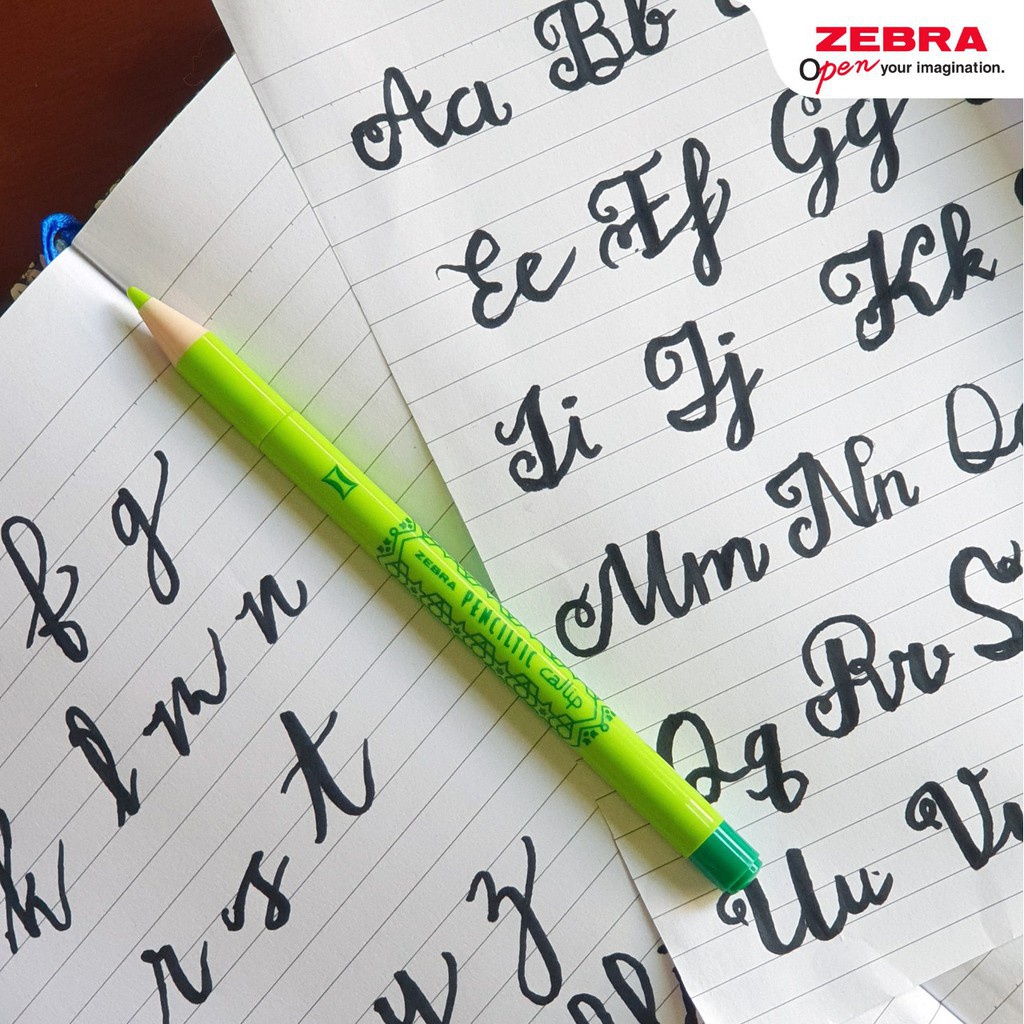 ZEBRA
Open your imagination.
Aa Bb
Ee Ff Gg
Ii Jj Kk
Mm Nn
Qq Rr S
Uu V
f g
l m n
k r s t
y z
ZEBRA PENCILTIC caLLip